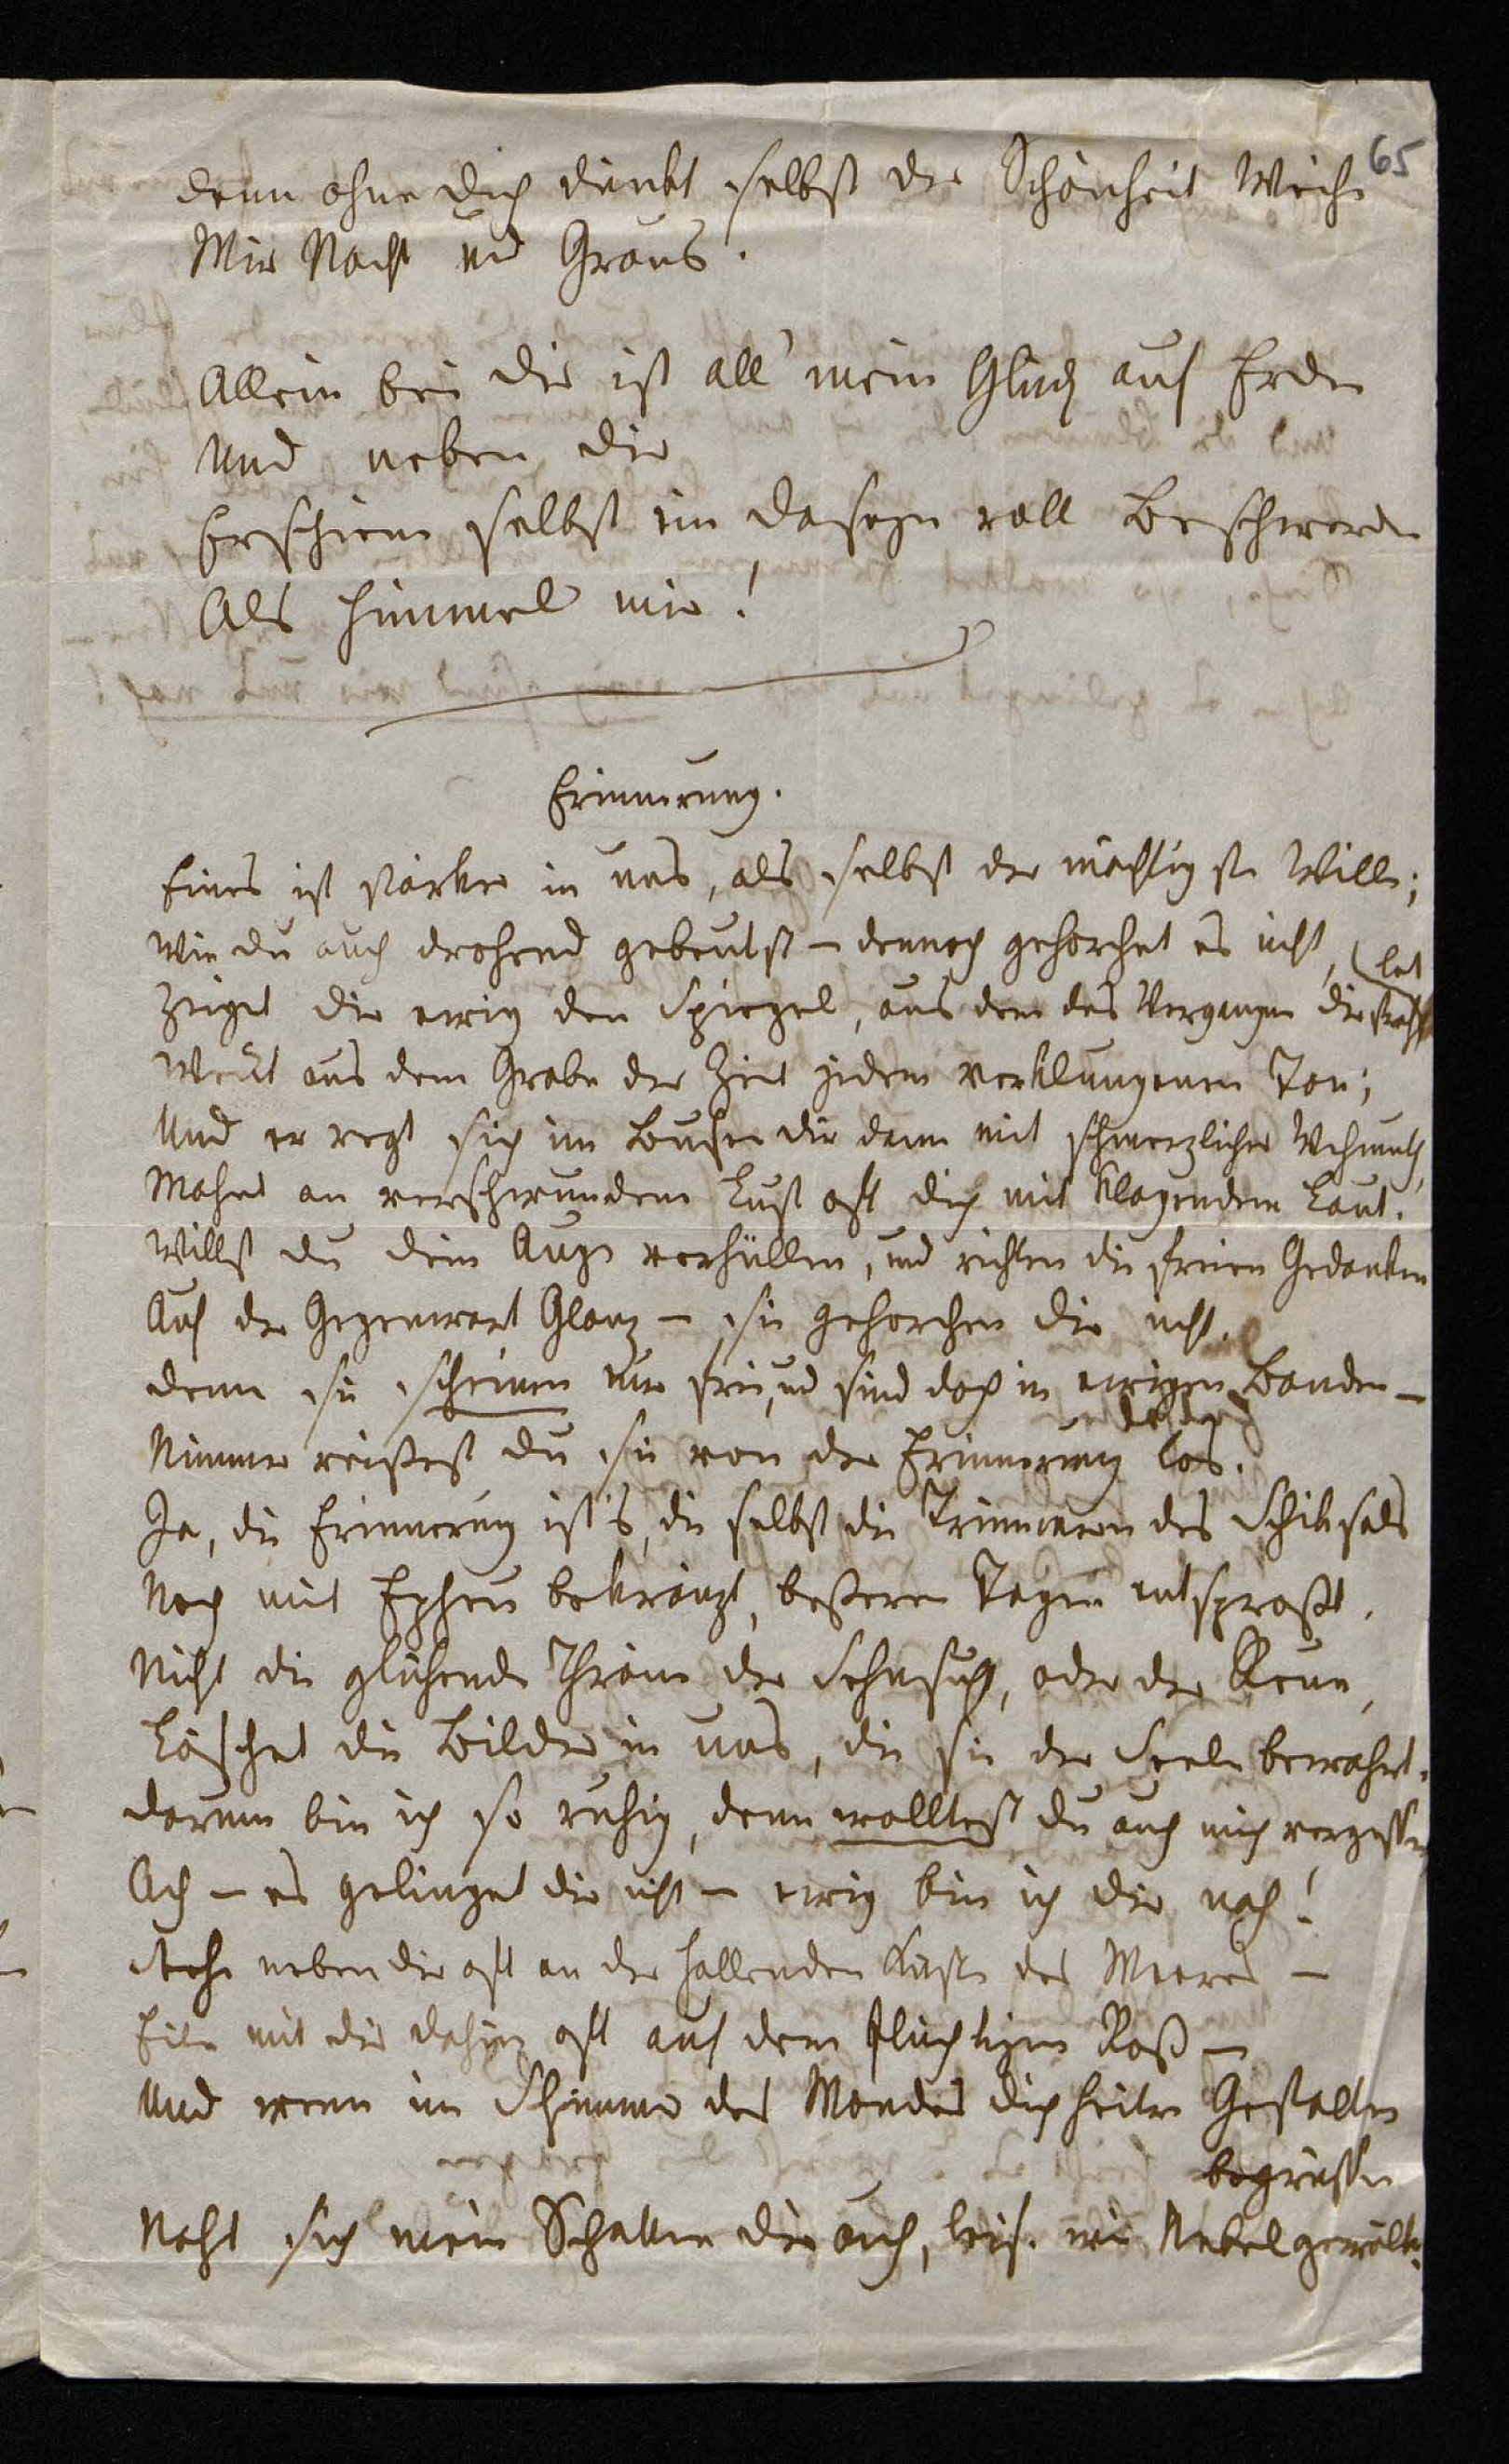 65
denn ohne dich dünkt selbst der Schönheit Weihe
Mir Nacht und Graus.
Allein bei dir ist all' mein Glück auf Erden
Und neben dir
Erschiene selbst ein Daseyn voll Beschwerden
Als Himmel mir!
Erinnerung.
Eines ist stärker in uns, als selbst der mächtigste Wille;
Wie du auch drohend gebeutst – dennoch gehorchet es nicht,
Zeiget dir ewig den Spiegel, aus dem das Vergangne dir strahlet
Weckt aus dem Grabe der Zeit jeden verklungenen Ton;
Und er regt sich im Busen dir dann mit schmerzlicher Wehmuth,
Mahnt an verschwundene Lust oft dich mit klagendem Laut.
Willst du dein Auge verhüllen, und richten die freien Gedanken
Auf der Gegenwart Glanz – sie gehorchen dir nicht.
denn sie scheinen nur frei, und sind doch in ewigen Banden –
Nimmer reißest du sie von der Erinnerung los.
Ja, die Erinnerung ist's, die selbst die Trümmern des Schiksals
Noch mit Epheu bekränzt, beßeren Tagen entsproßt.
Nicht die glühende Thräne der Sehnsucht, oder der Reue,
Löschet die Bilder in uns, die sie der Seele bewahrt.
darum bin ich so ruhig, denn wolltest du auch mich vergessen
Ach – es gelinget dir nicht – ewig bin ich dir nah!
Stehe neben dir oft an der hallenden Küste des Meeres –
Eile mit dir dahin oft auf dem flüchtigen Roß –
Und wenn im Schimmer des Mondes dich heitre Gestalten
begrüssen
Naht sich mein Schatten dir auch, leise wie Nebelgewölk.